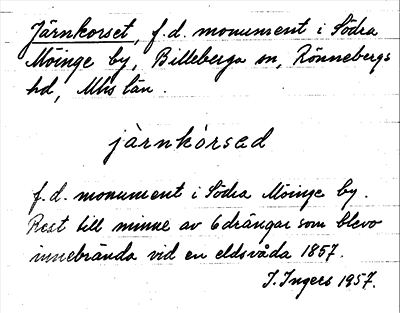 Järnkorset, f.d. monument i Södra
Möinge by, Billeberga sn, Rönnebergs
hd, Mhs län.
järnkórsad
f.d. monument i Södra Möinge by.
Rest till minne av 6 drängar som blevo
innebrända vid en eldsvåda 1857.
I. Ingers 1957.